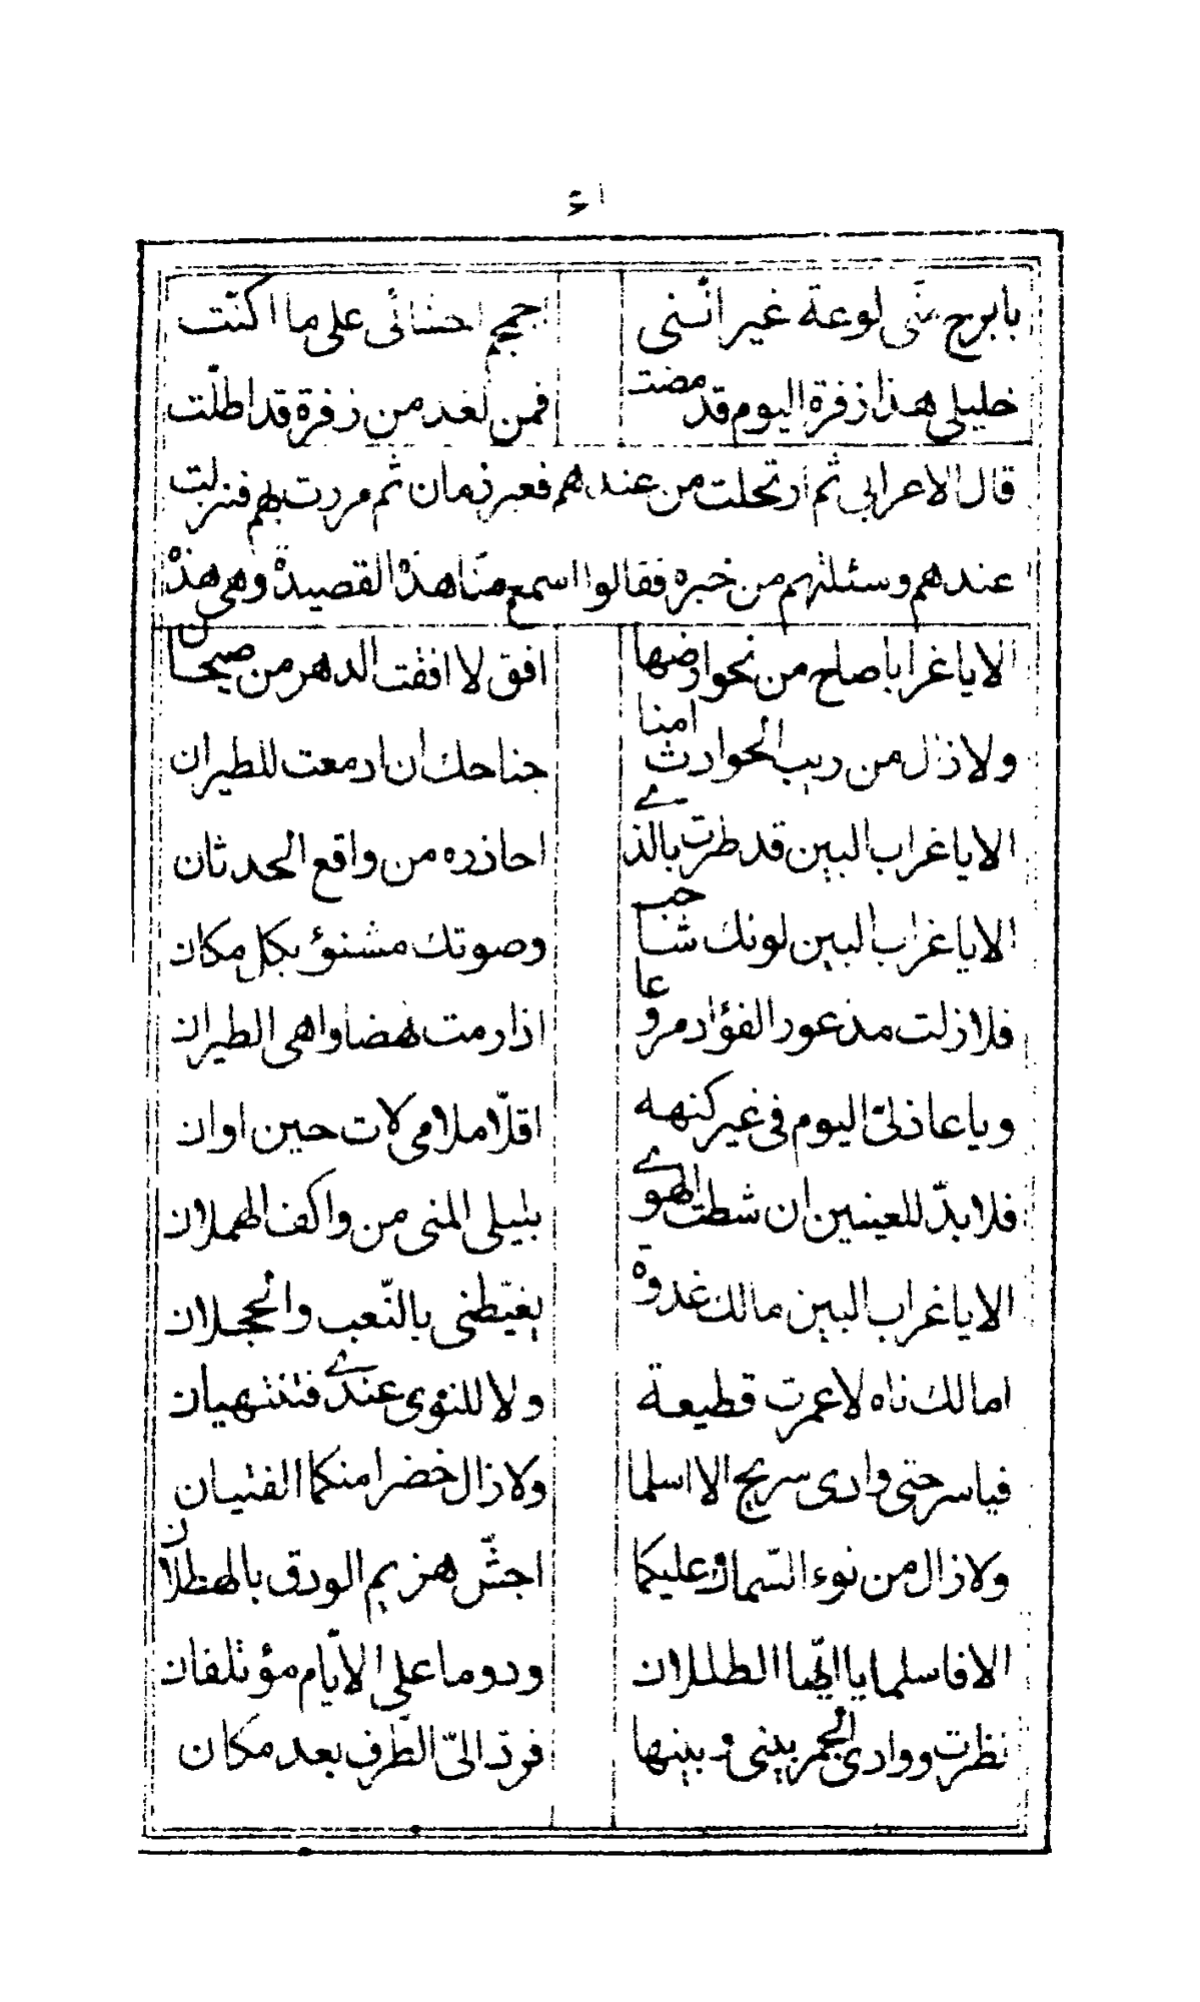 ٤١
بابرح منّی لوعة غیر انّنی اجمجم احشائی علی ما اکنّت
خلیلی هذا زفرة الیوم قد مضت فمن لغد من زفرة قد اطلّت
قال الاعرابی ثم ارتحلت من عندهم فعبر زمان ثم مررت بهم فنزلت
عندهم وسئلتهم من خبره فقالوا اسمع منّا هذه القصیدة وهی هذه
الا یا غرابا صاح من نحو ارضها افق لا افقت الدهر من صیحان
ولا زال من ریب الحوادث امنا جناحك ان ازمعت للطیران
الا یا غراب البین قد طرت بالذی احاذره من واقع الحدثان
الا یا غراب البین لونك شاحب وصوتك مشنوؤ بکل مکان
فلا زلت مذعور الفؤاد مروعا اذا رمت نهضا واهی الطیران
ویا عاذلیّ الیوم فی غیر کنهه اقلّا ملامی لات حین اوان
فلا بدّ للعینین ان شطت الهوی بلیلی المنی من واکف الهملان
الا یا غراب البین مالك غدوة یغیّظنی بالنّعب والحجلان
امالك ناه لا عمرت قطیعة ولا للنوی عندی فتنتهیان
فیا سرحتی وادی سریح الا اسلما ولا زال خضرا منکما الفنیان
ولا زال من نوء السّماك علیکما اجشّ هزیم الودق بالهطلان
الا فاسلما یا ایّها الطللان ودوما علی الایّام مؤتلفان
نظرت ووادی الحجر بینی وبینها فردّ الیّ الطّرف بعد مکان